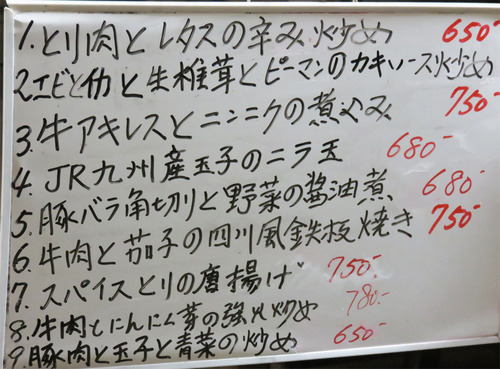 1.とり肉とレタスの辛み炒め 650-
2.エビとイカと生椎茸とピーマンのカキソース炒め
3.牛アキレスとニンニクの煮込み 750-
4.JR九州産玉子のニラ玉 680-
5.豚バラ角切りと野菜の醤油煮 680-
6.牛肉と茄子の四川風鉄板焼き 750-
7.スパイスとりの唐揚げ 750-
8.牛肉とにんにく芽の強火炒め 780-
9.豚肉と玉子と青菜の炒め 650-